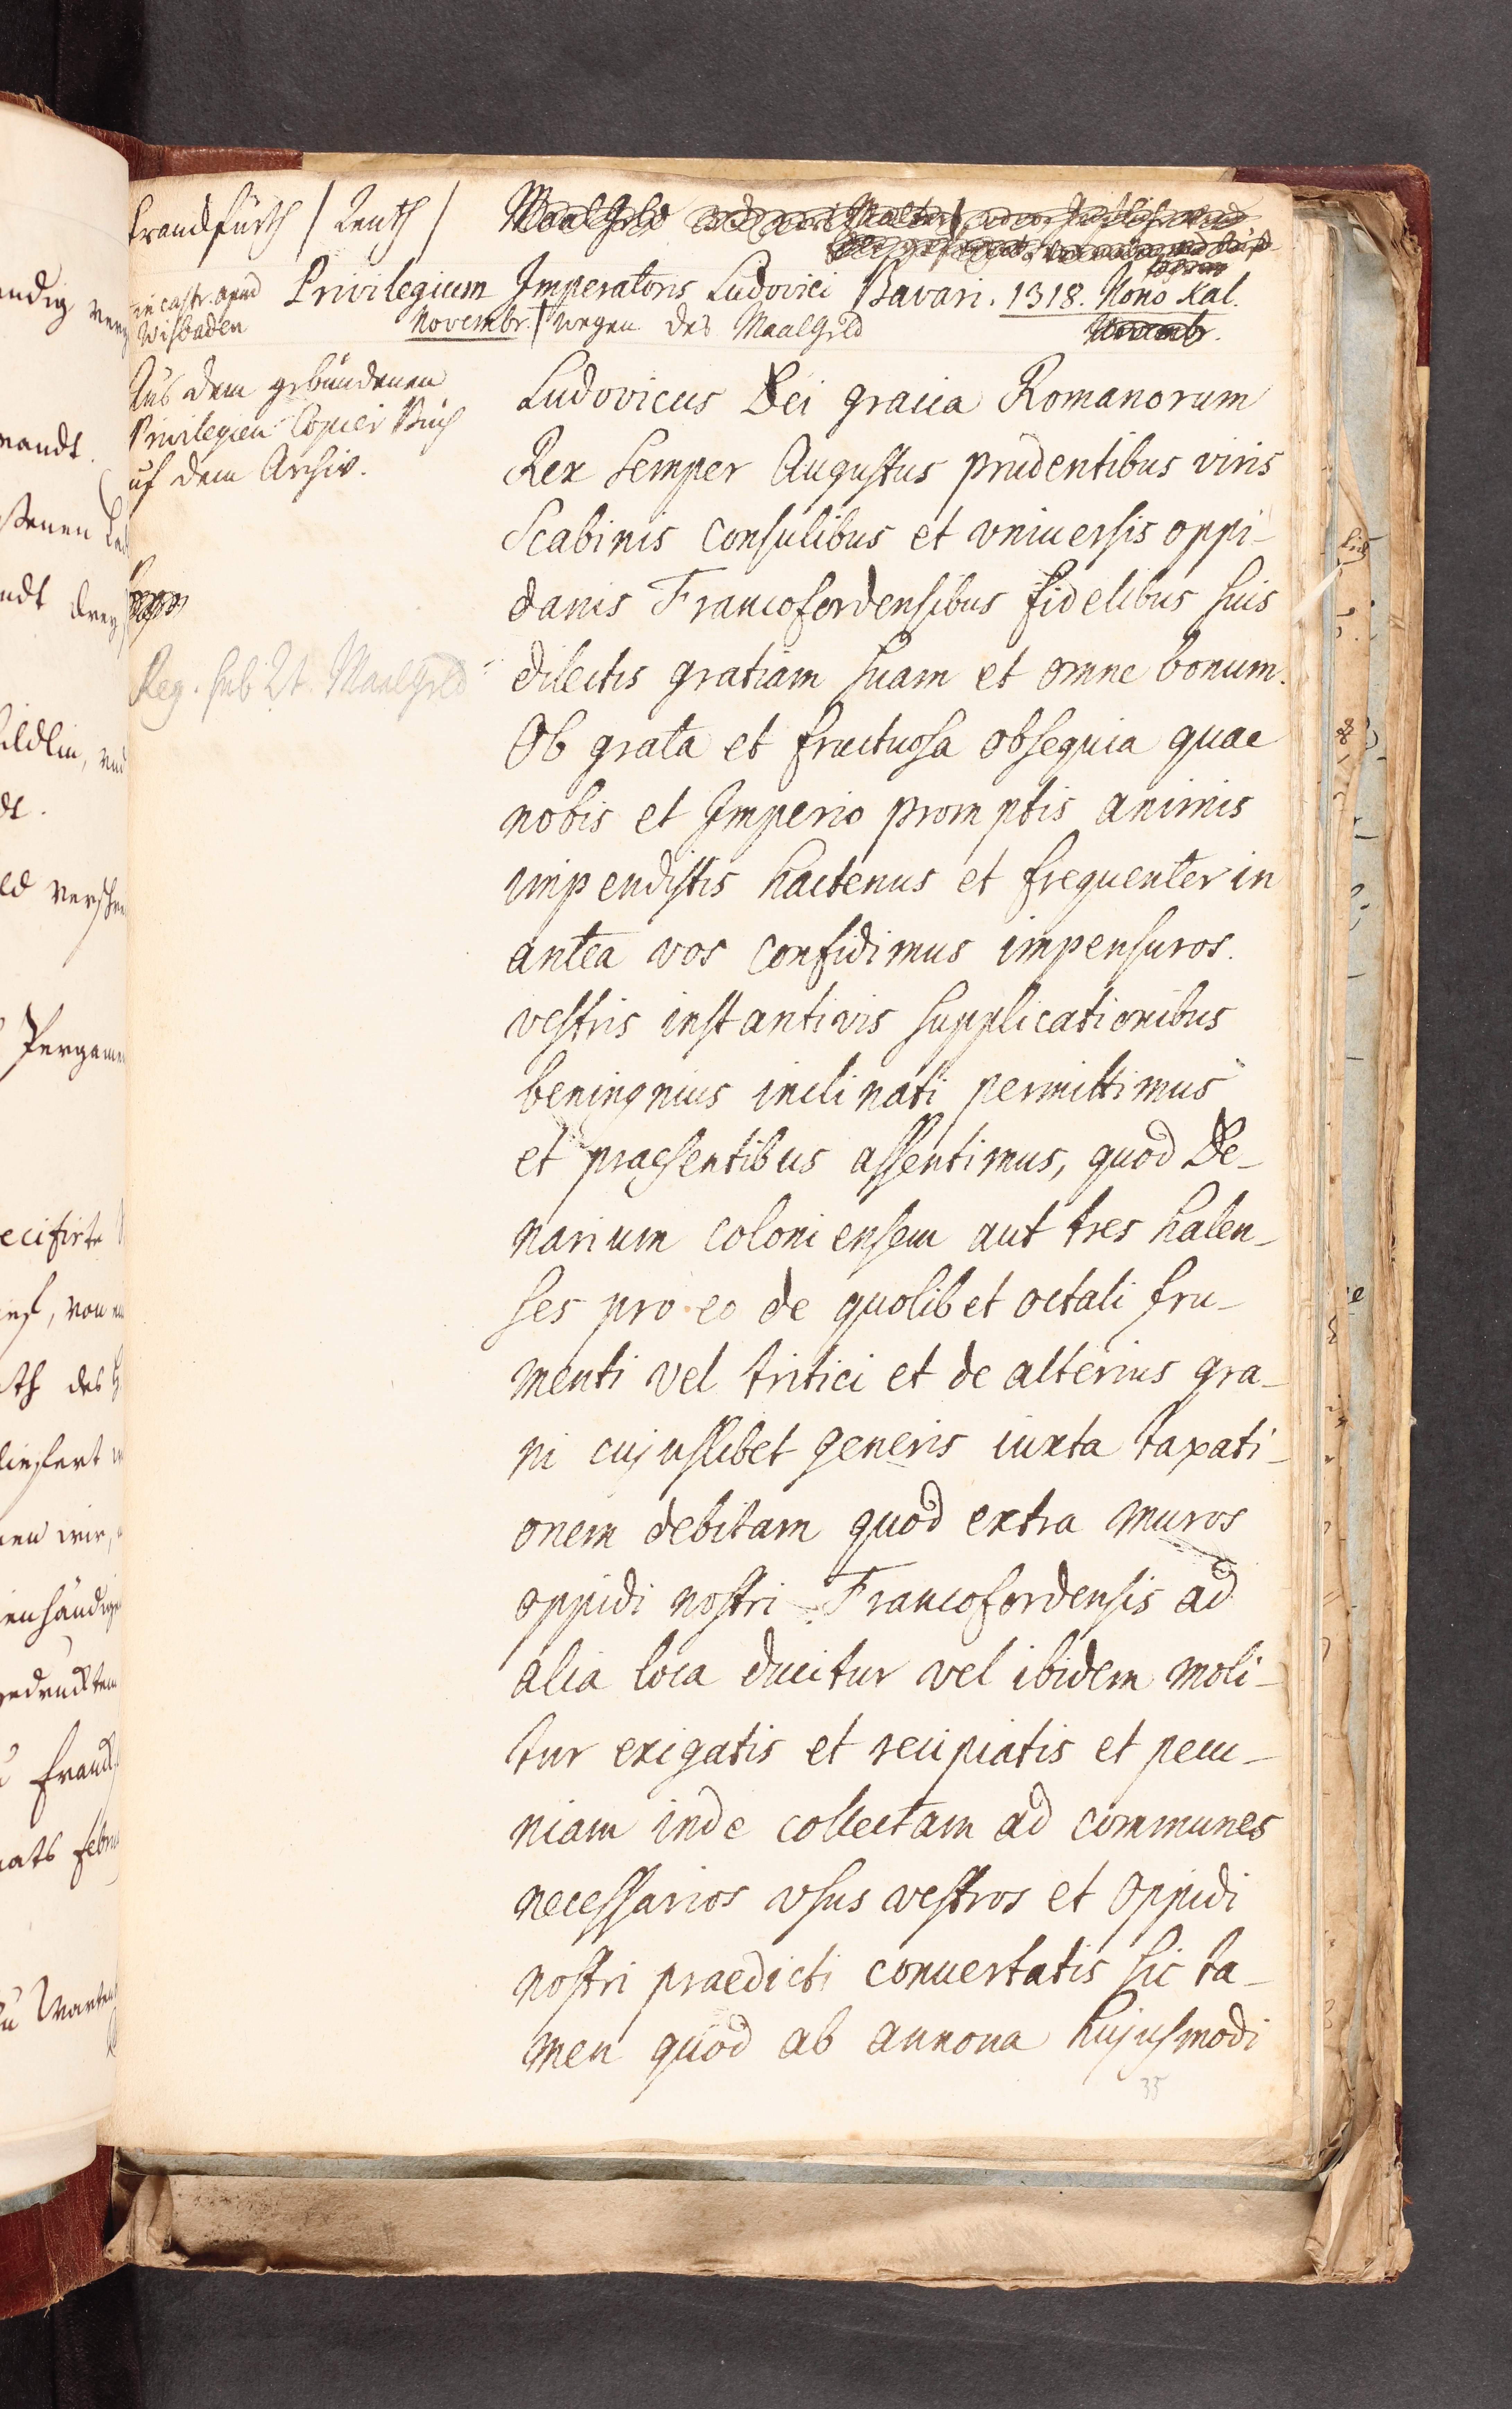 Franckfurth / Zeuth /
MaalGeld
in castr. apud
Wisbaden
Privilegium Imperatoris Ludovici Bavari. 1318. Nono Kal.
Novembr. / wegen des MaalGeld
Novembr.
Aus dem gebundenen
Privilegien Copier Buch
uf dem Archiv.
Reg. sub Lit. MaalGeld
Ludovicus Dei gracia Romanorum
Rex semper Augustus prudentibus viris
Scabinis consulibus et vniuersis oppi-
danis Francofordensibus fidelibus suis
dilectis gratiam suam et omne bonum.
Ob grata et fructuosa obsequia quae
nobis et Imperio promptis animis
impendistis hactenus et frequenter in
antea vos confidimus impensuros.
vestris instantivis supplicationibus
beningnius inclinati permittimus
et praesentibus assentimus, quod De-
narium coloniensem aut tres halen-
ses pro eo de quolibet octali fru-
menti vel tritici et de alterius gra-
ni cujuslibet generis iuxta taxati-
onem debitam quod extra muros
oppidi nostri Francofordensis ad
alia loca ducitur vel ibidem moli-
tur exigatis et recipiatis et pecu-
niam inde collectam ad communes
necessarios vsus vestros et oppidi
nostri praedicti conuertatis sic ta-
men quod ab annona hujusmodi
35